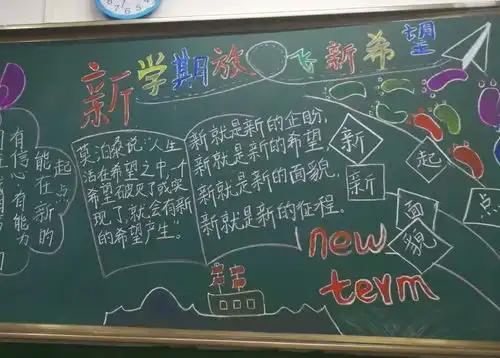 新学期放飞新希望
有信心·有能力
能在新的
起点
莫泊桑说:“人生
活在希望之中,一个
希望破灭了或实
现了,就会有新
的希望产生。”
新就是新的企盼,
新就是新的希望,
新就是新的面貌,
新就是新的征程。
新
起
点
新
面
貌
new
term